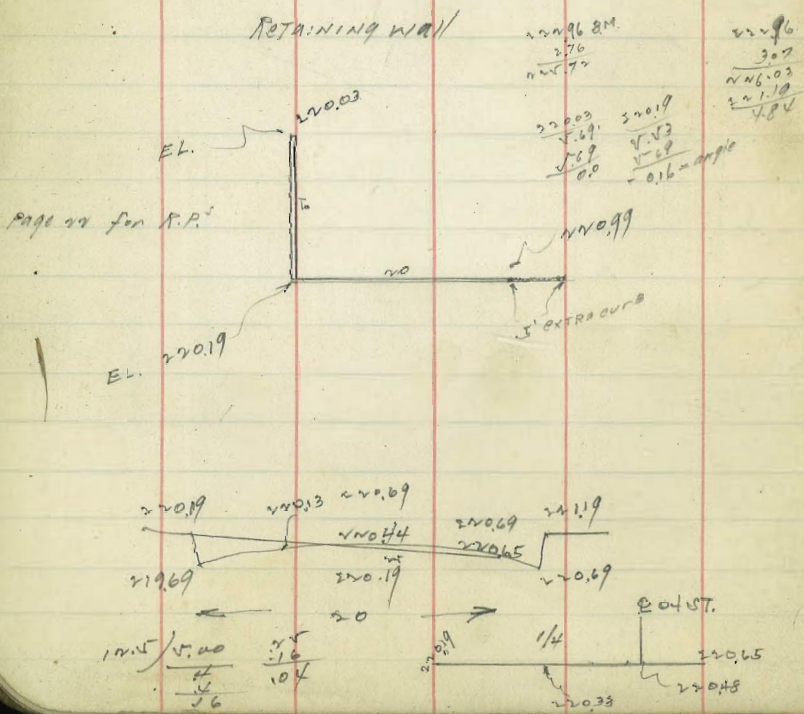 Retaining wall
222.96 B.M.
2.76
225.72
222.96
3.07
226.03
221.19
4.84
220.03
5.69
5.69
0.0
220.19
5.53
5.69
-0.16 = angle
220.03
EL.
Page 22 for R.P.s
220.99
20
5' extra curb
EL. 220.19
220.19
220.13
220.69
221.19
220.44
220.69
220.65
219.69
220.19
220.69
20
12.5 / 5.00
.25
.16
.04
1/4
220.19
220.65
220.48
220.33